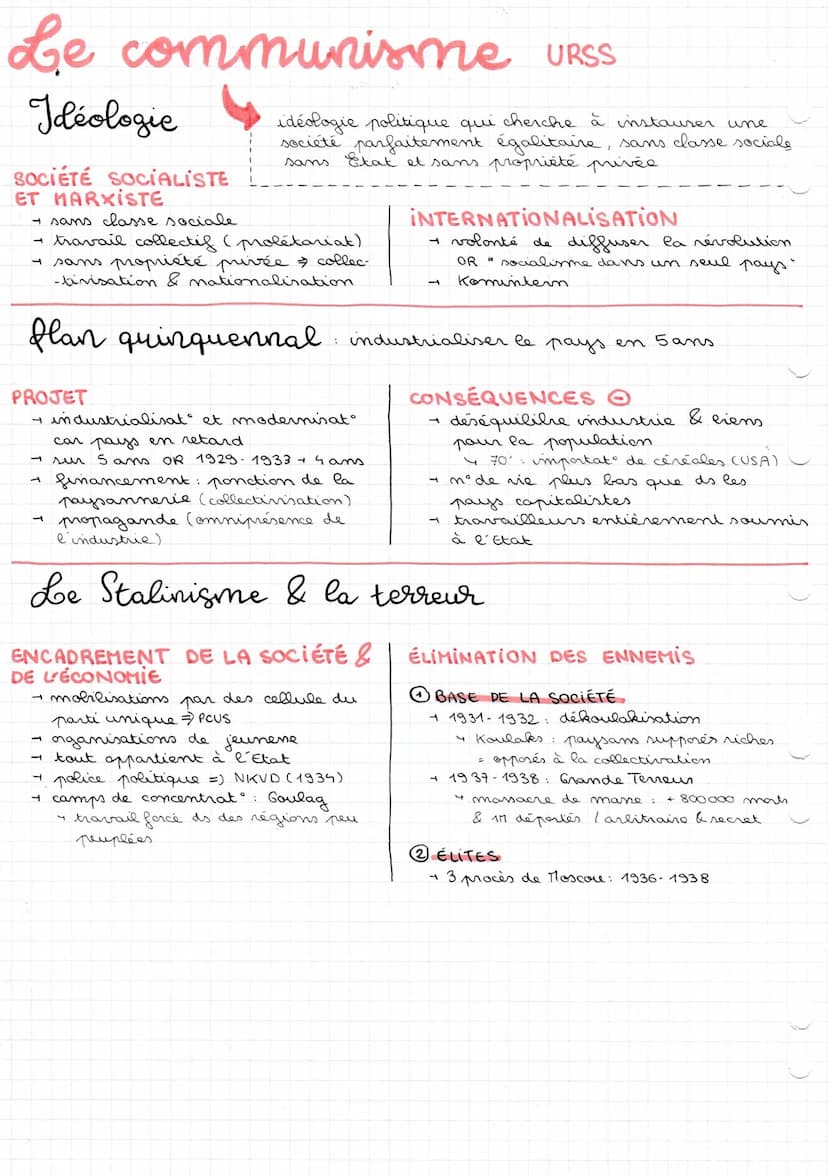 Le communisme URSS
Idéologie
idéologie politique qui cherche à instaurer une
société parfaitement égalitaire, sans classe sociale
sans État et sans propriété privée
SOCIÉTÉ SOCIALISTE
ET MARXISTE
→ sans classe sociale
→ travail collectif (prolétariat)
→ sans propriété privée ⇒ collec-
-tivisation & nationalisation
INTERNATIONALISATION
→ volonté de diffuser la révolution
OR " socialisme dans un seul pays"
→ Komintern
Plan quinquennal : industrialiser le pays en 5 ans
PROJET
→ industrialisat° et modernisat°
car pays en retard
→ sur 5 ans OR 1929-1933 → 4 ans
→ financement : ponction de la
paysannerie (collectivisation)
→ propagande (omniprésence de
l'industrie)
CONSÉQUENCES ⊖
→ déséquilibre industrie & biens
pour la population
↳ 70' : importat° de céréales (USA)
→ n° de vie plus bas que ds les
pays capitalistes
→ travailleurs entièrement soumis
à l'Etat
Le Stalinisme & la terreur
ENCADREMENT DE LA SOCIÉTÉ &
DE L'ÉCONOMIE
→ mobilisations par des cellule du
parti unique ⇒ PCUS
→ organisations de jeunesse
→ tout appartient à l'Etat
→ police politique => NKVD (1934)
→ camps de concentrat° : Goulag
↳ travail forcé ds des régions peu
peuplées
ÉLIMINATION DES ENNEMIS
① BASE DE LA SOCIÉTÉ
→ 1931-1932 : dékoulakisation
↳ Koulaks : paysans supposés riches
= opposés à la collectivation
→ 1937-1938 : Grande Terreur
↳ massacre de masse : + 800 000 morts
& 1M déportés / arbitraire & secret
② ÉLITES
→ 3 procès de Moscou : 1936-1938